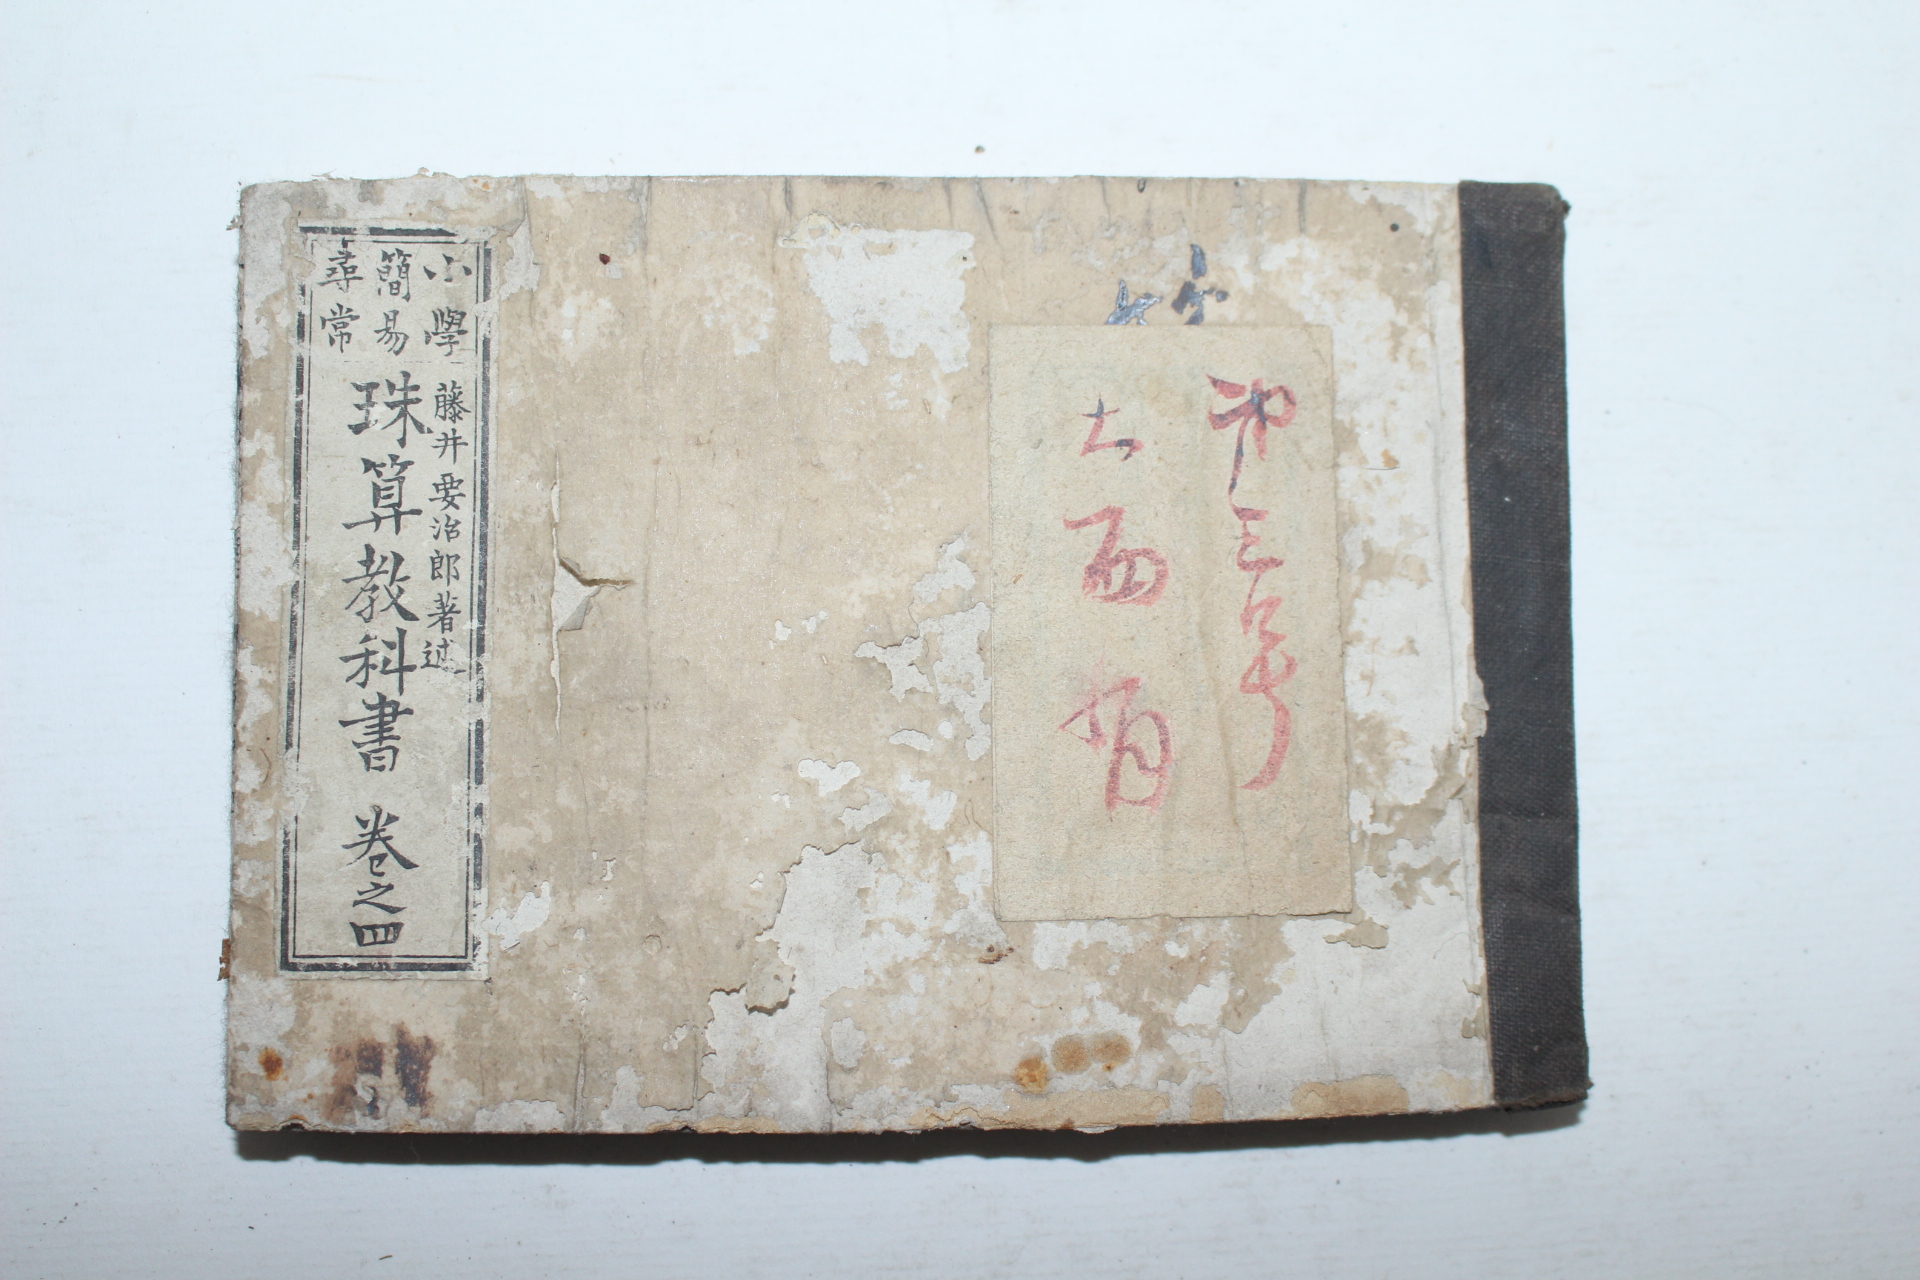 第三号
小學
簡易
尋常
藤井要治郎著述
珠算教科書 卷之四